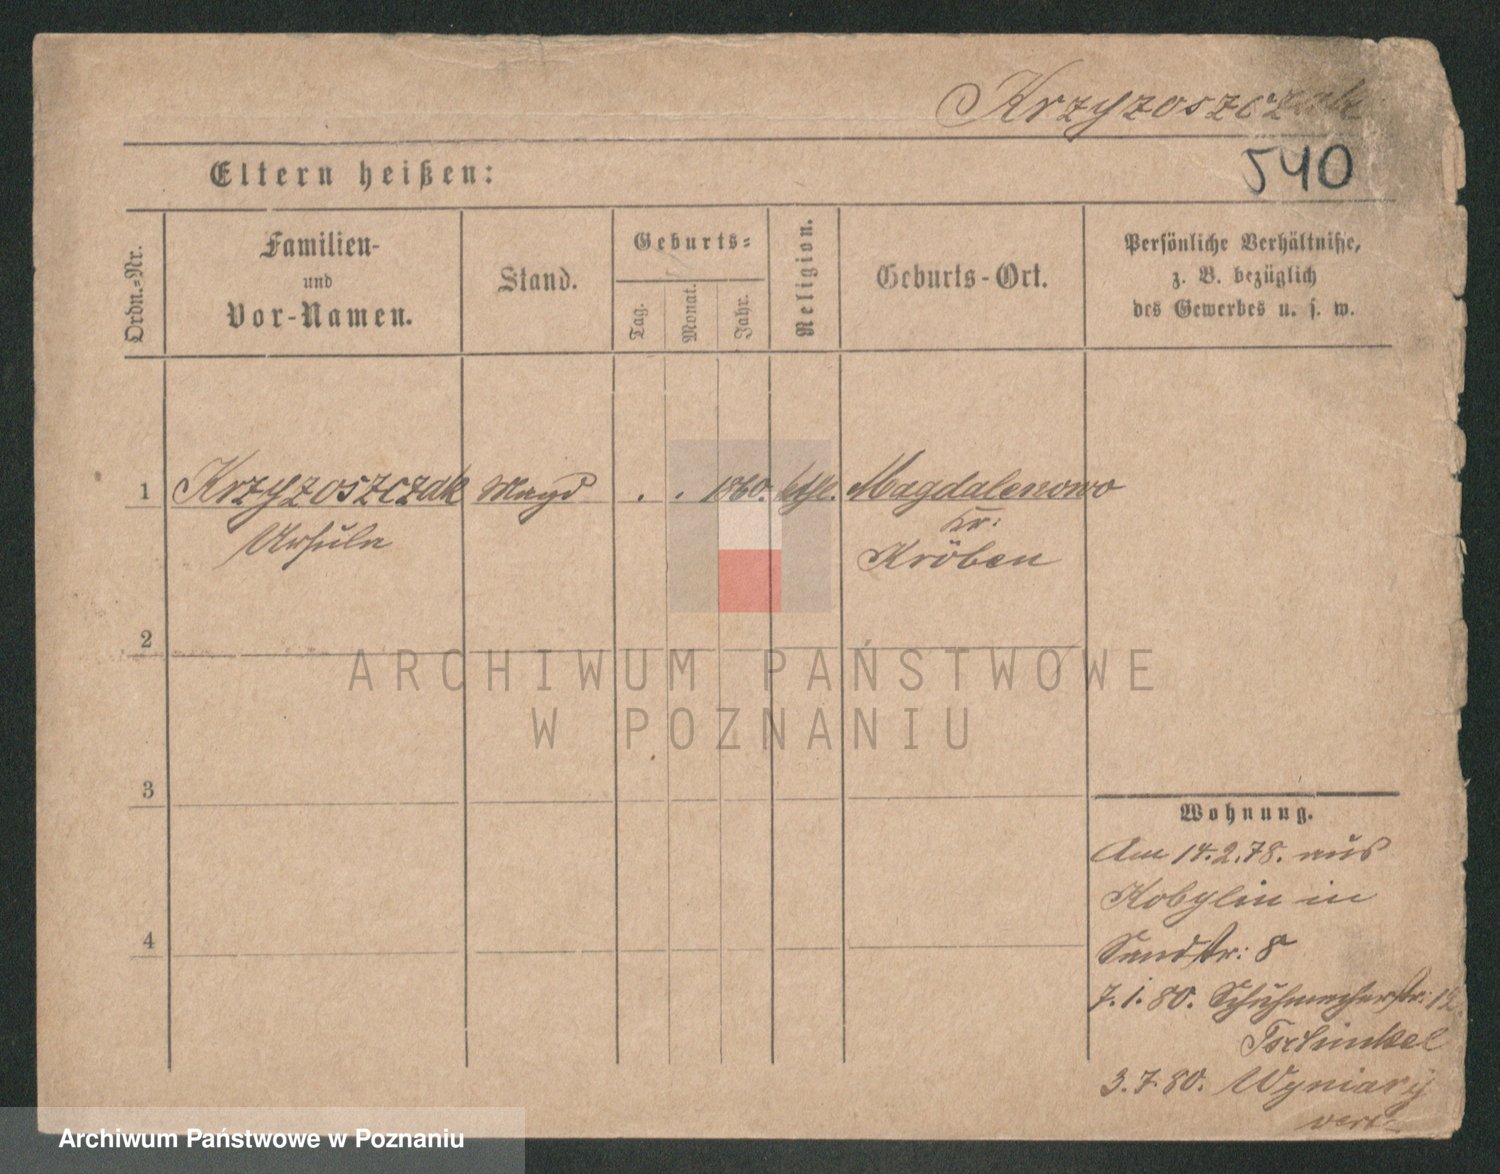 Krzyzoszczak
540
Eltern heißen:
Ordn.-Nr.
Familien-
und
Vor-Namen.
Stand.
Geburts-
Tag.
Monat.
Jahr.
Religion.
Geburts-Ort.
Persönliche Verhältniße,
z. B. bezüglich
des Gewerbes u. s. w.
1 Krzyzoszczak Magd . . 1860. kth. Magdalenowo
Ursula Kr:
Kröben
2
3
4
Wohnung.
Am 14.2.78. aus
Kobylin in
Sandstr: 8
7.1.80. Schuhmacherstr: 12
Tschinkel
3.7.80. Wyniary
verz.
ARCHIWUM PAŃSTWOWE
W POZNANIU
Archiwum Państwowe w Poznaniu